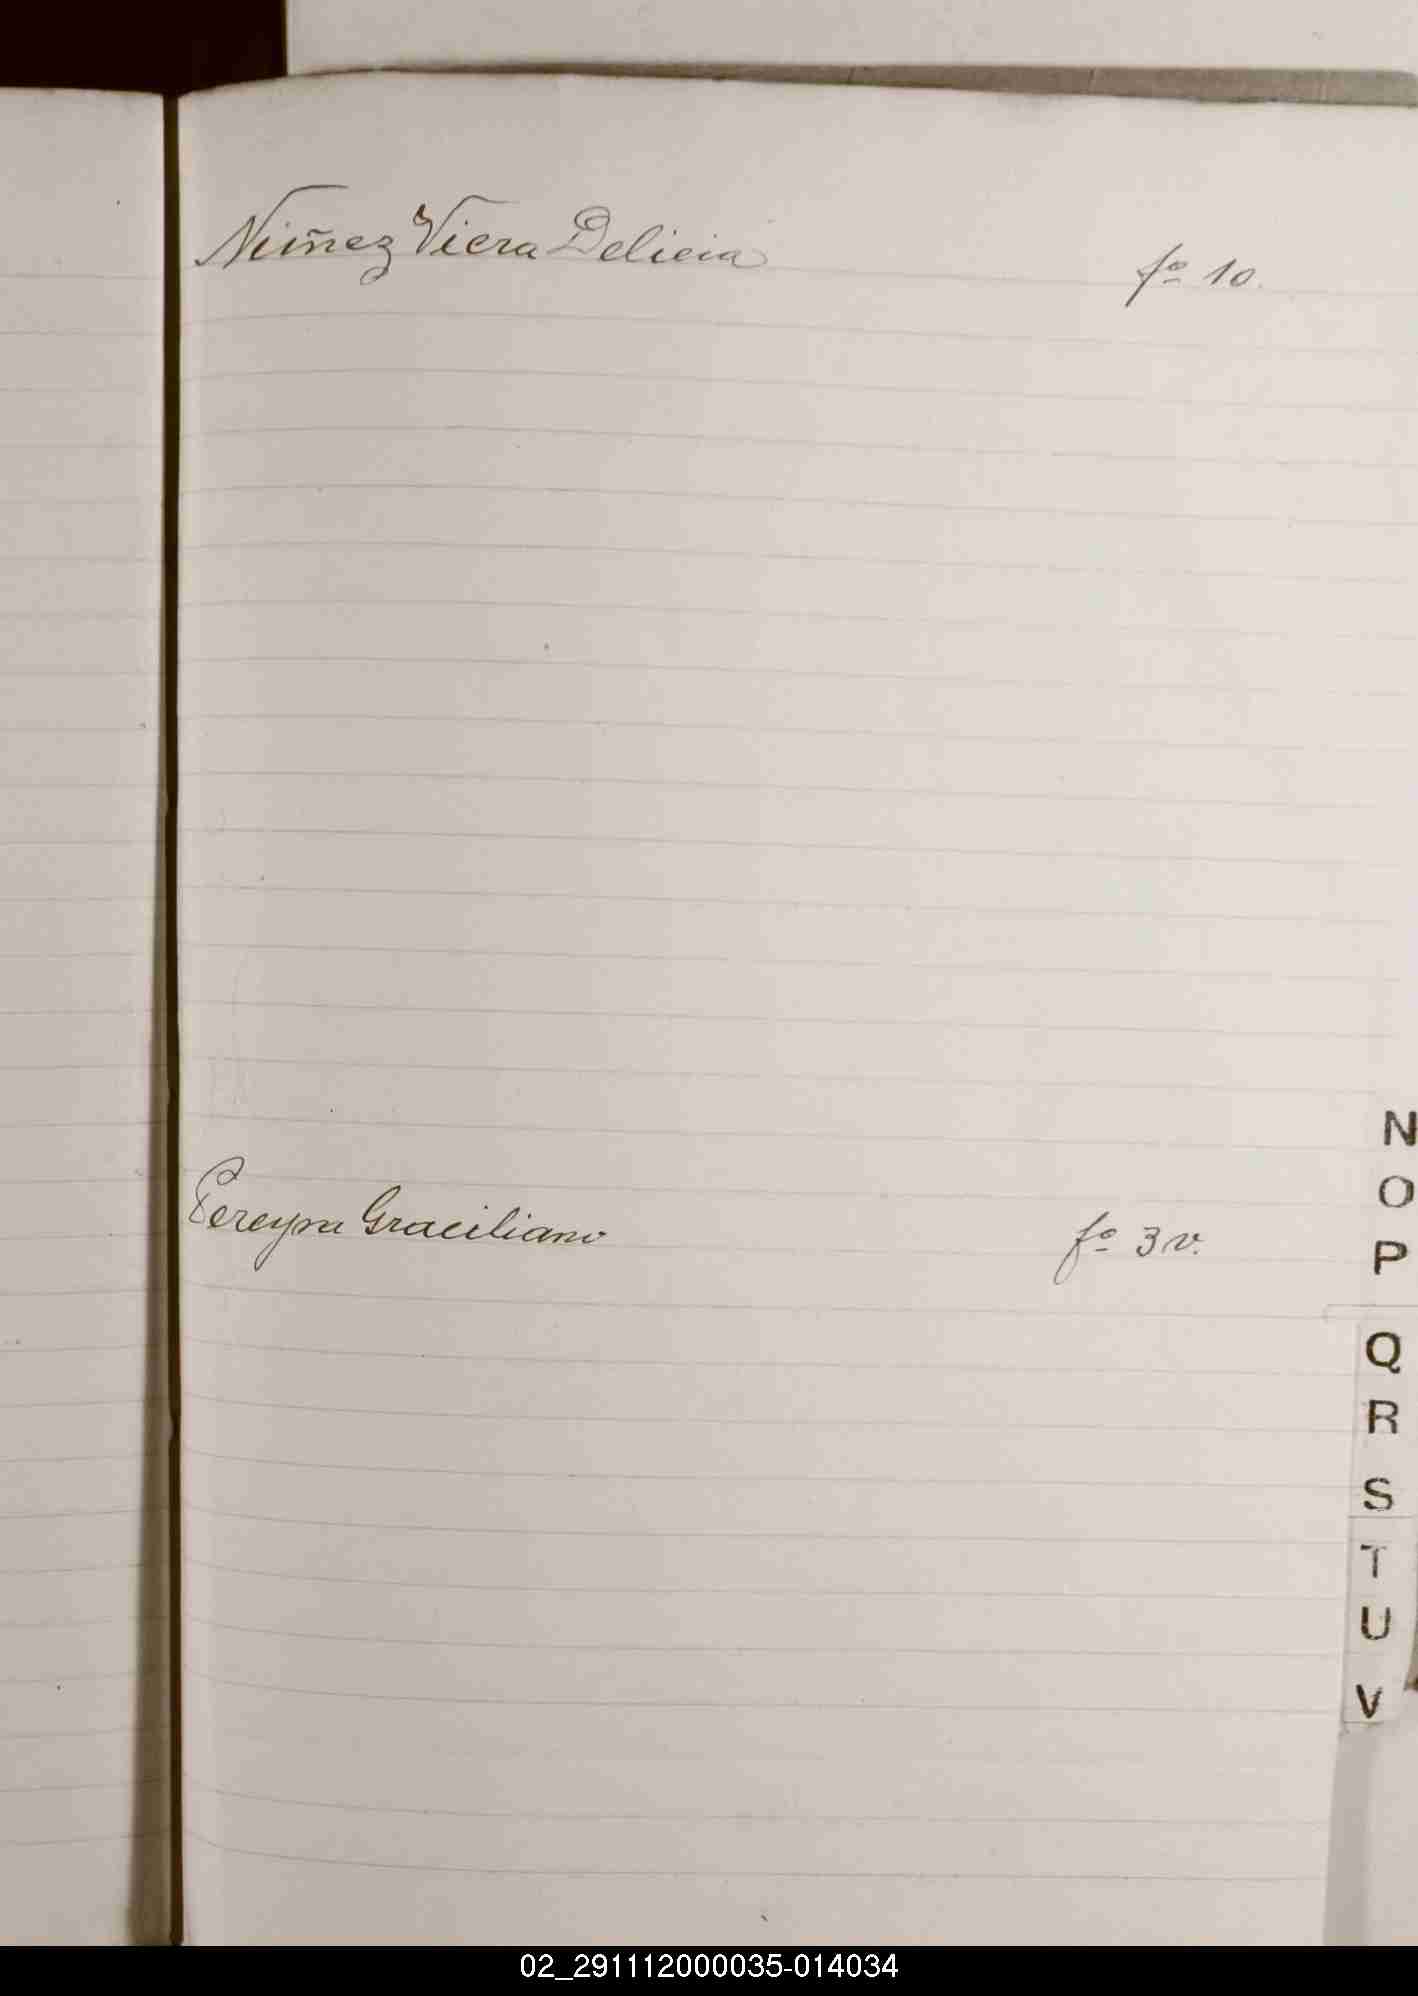 Nuñez Viera Delicia fº 10.
Pereyra Graciliano fº 3 v.
N
O
P
Q
R
S
T
U
V
02_291112000035-014034